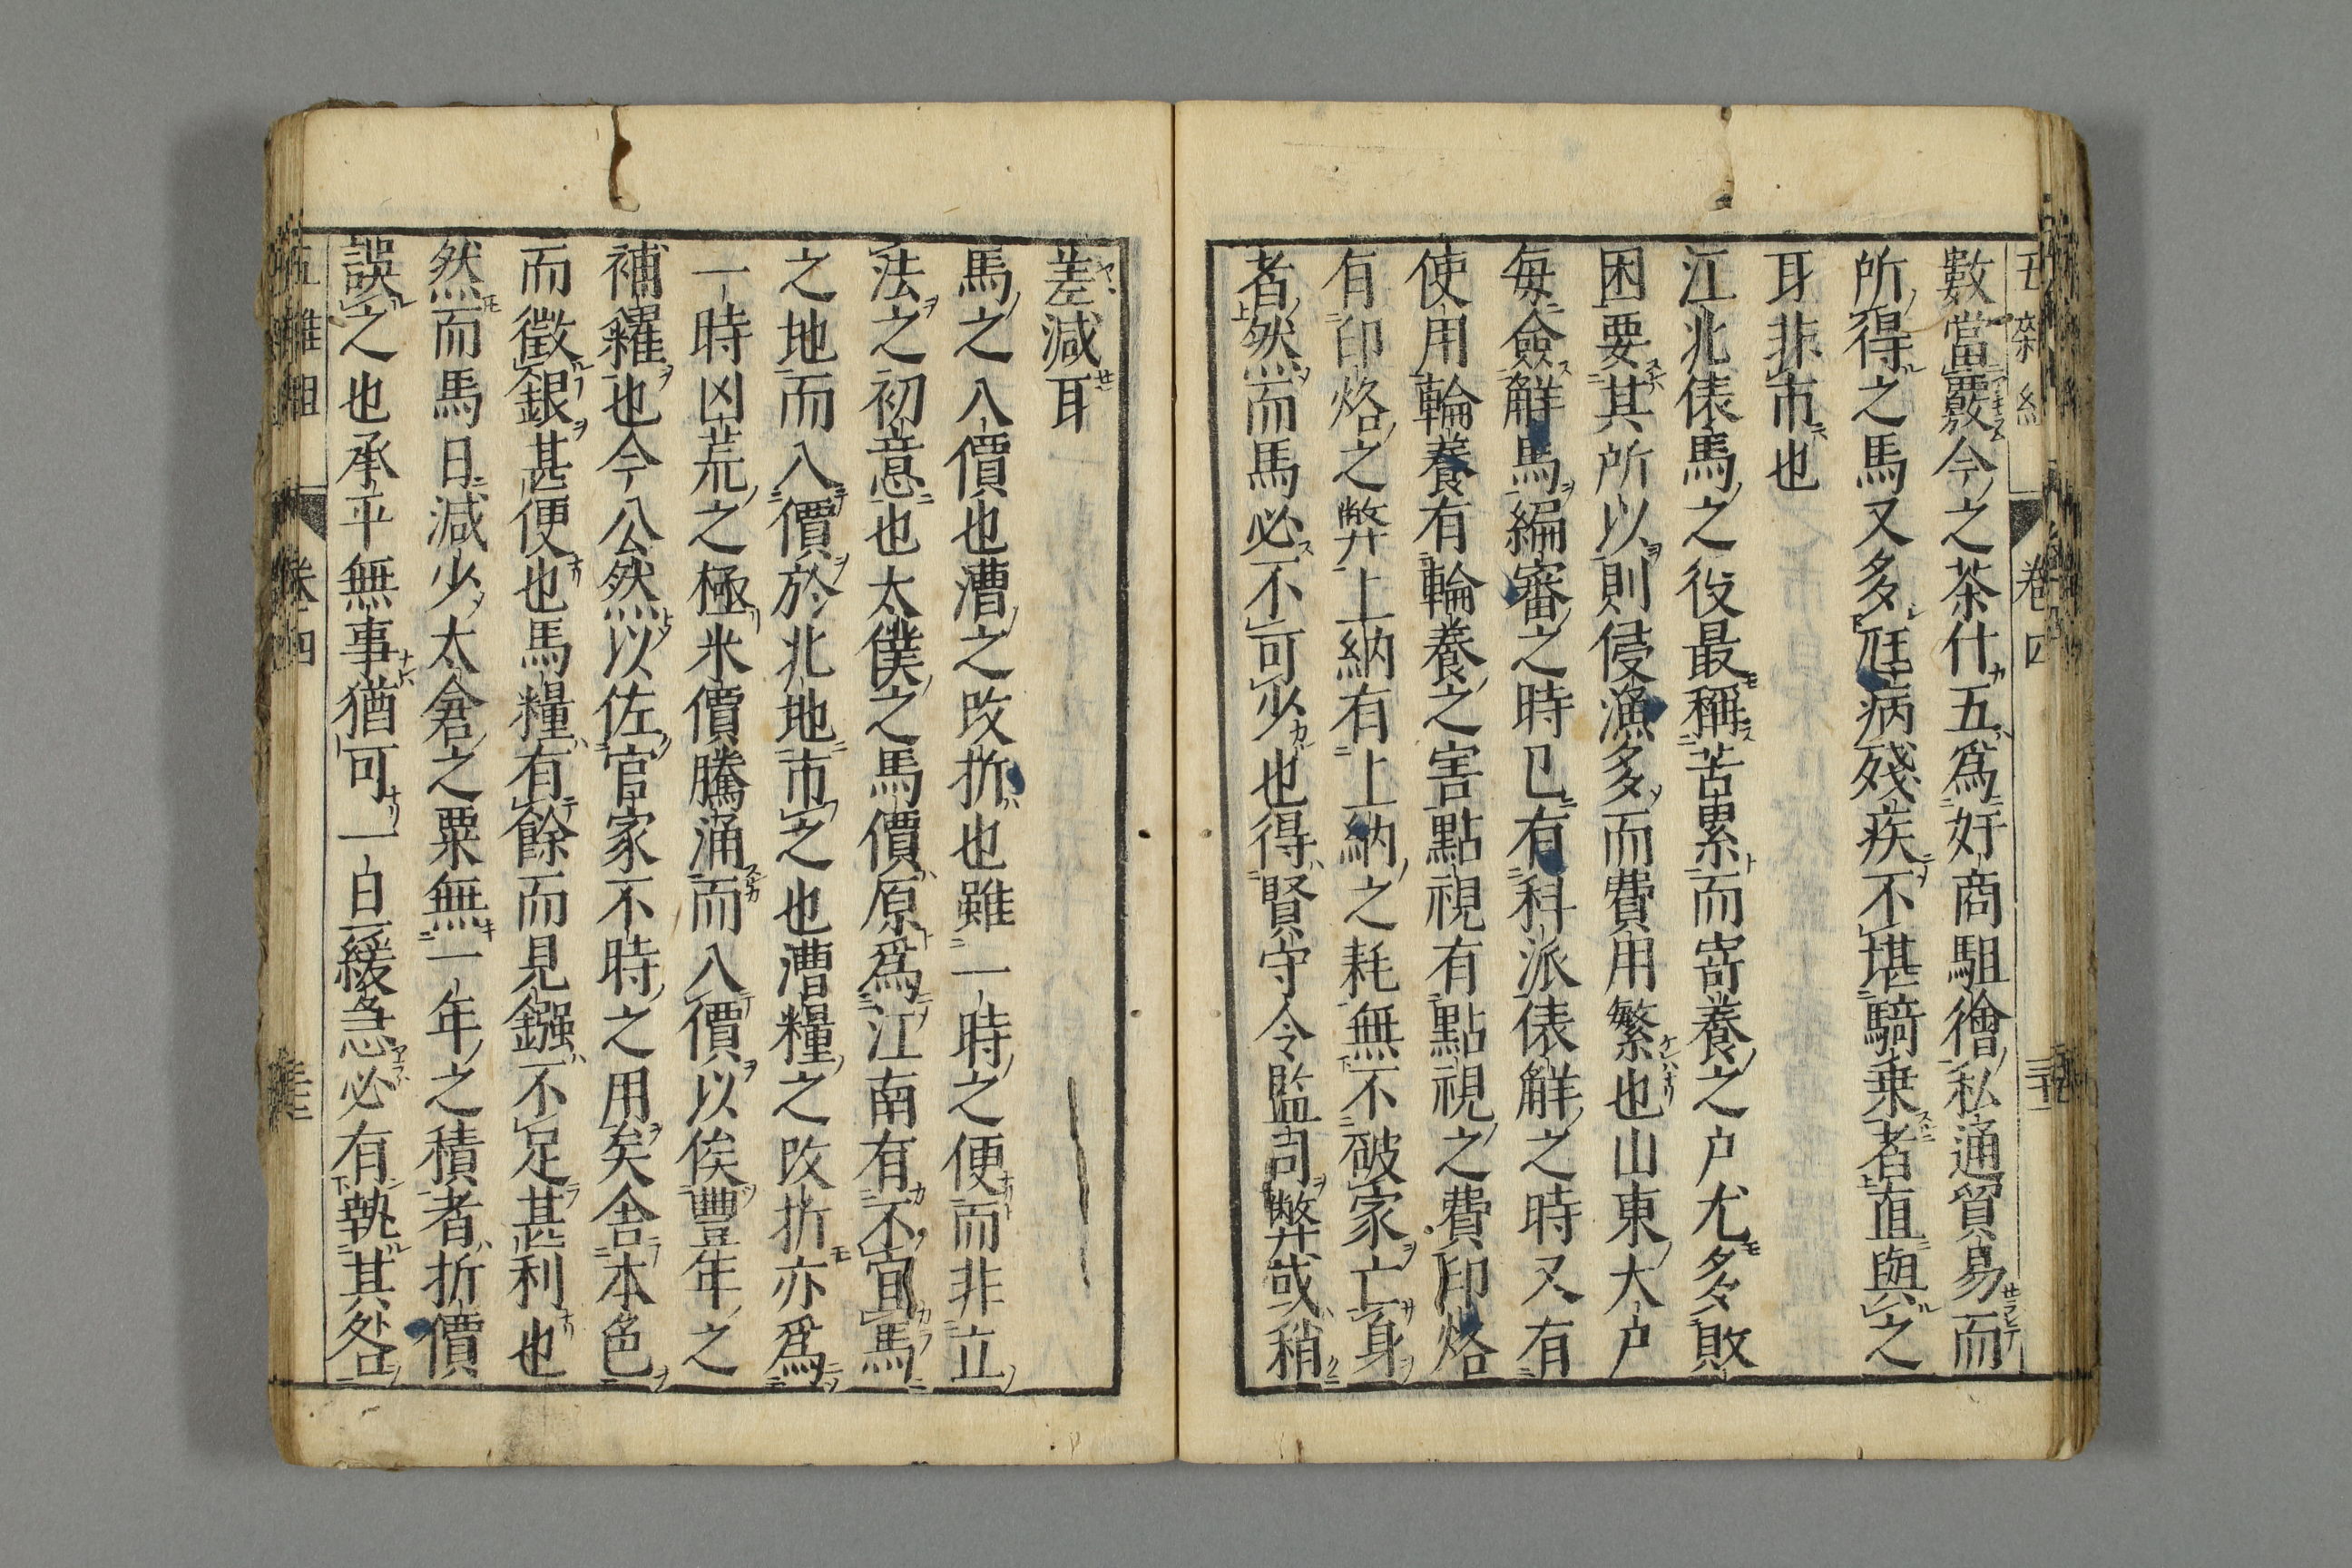 數當覈今之茶什五爲奸商駔儈私通貿易而
所得之馬又多尫病殘疾不堪騎乗者直與之
耳非市也
江北俵馬之役最稱苦累而寄養之户尤多敗
困要其所以則侵漁多而費用繁也山東大户
每僉觧馬編審之時已有科派俵觧之時又有
使用輪養有輪養之害點視有點視之費印烙
有印烙之弊上納有上納之耗無不破家亡身
者然而馬必不可少也得賢守令監司弊或稍
差減耳
馬之入價也漕之改折也雖一時之便而非立
法之初意也太僕之馬價原爲江南有不宜馬
之地而入價於北地市之也漕糧之改折亦爲
一時凶荒之極米價騰涌而入價以俟豐年之
補糴也今公然以佐官家不時之用矣舎本色
而徵銀甚便也馬糧有餘而見鏹不足甚利也
然而馬日減少太倉之粟無一年之積者折價
誤之也承平無事猶可一旦緩急必有執其咎
卷四